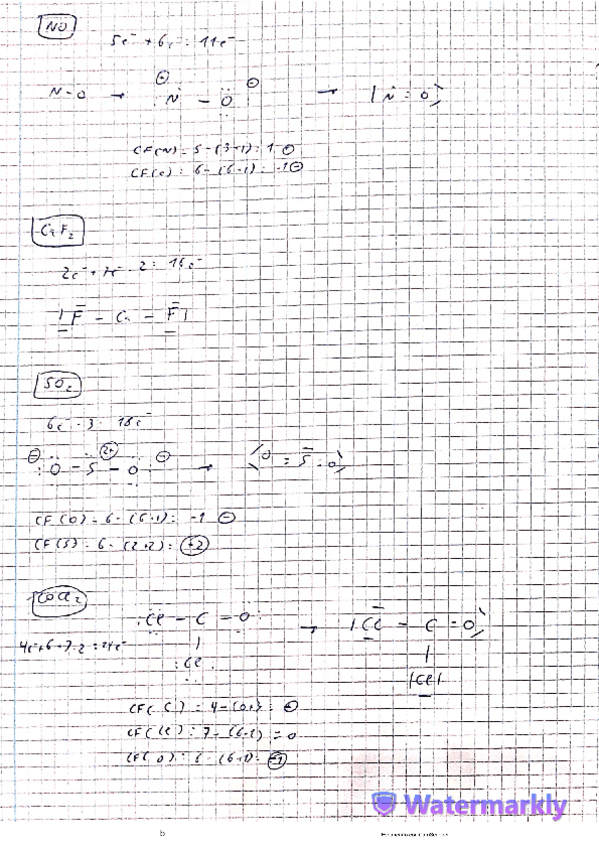 NO
5e⁻ + 6e⁻ : 11e⁻
N-O → N – O → |N = O
CF(N) = 5 - (3+1) : 1 ⊕
CF(O) : 6 - (6+1) : -1 ⊖
F₂
2e⁻ + 7e⁻ · 2 = 16e⁻
|F – Ca – F|
SO₂
6e⁻ · 3 = 18e⁻
⊖ 2+ ⊖
:O – S – O: → O = S = O
CF(O) = 6 - (6+1) : -1 ⊖
CF(S) = 6 - (2+2) : +2
COCl₂
:Cl – C – O: → |Cl – C = O
4e⁻+6+7·2 = 24e⁻
|
:Cl: |Cl|
CF(C) = 4 -
CF(Cl) : 7 - (6+1) = 0
CF(O) : 6 - (6+1) = -1
Watermarkly